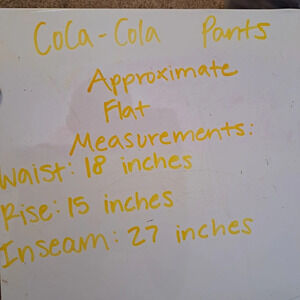 CoCa-Cola Pants
Approximate
Flat
Measurements:
Waist: 18 inches
Rise: 15 inches
Inseam: 27 inches